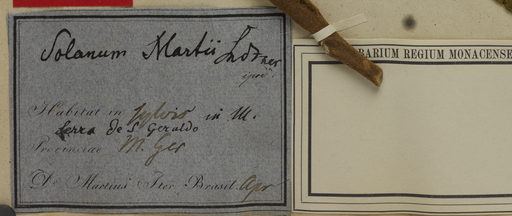 Solanum Martii Sndtner
ipse
Habitat in sylvis in M.
Serra de S. Geraldo
Provinciae M. Ger
Dr. Martius Iter Brasil. Apr
BARIUM REGIUM MONACENSE